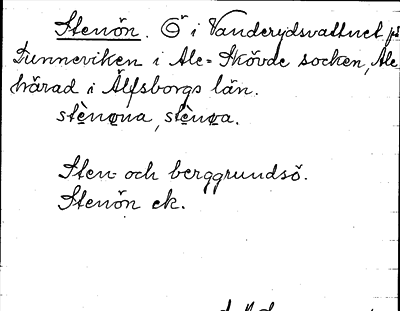 Stenön. Ö i Vanderydsvattnet på
Tunneviken i Ale-Skövde socken, Ale
härad i Älfsborgs län.
stènωna, stènωa.
Sten- och berggrundsö.
Stenön ek.